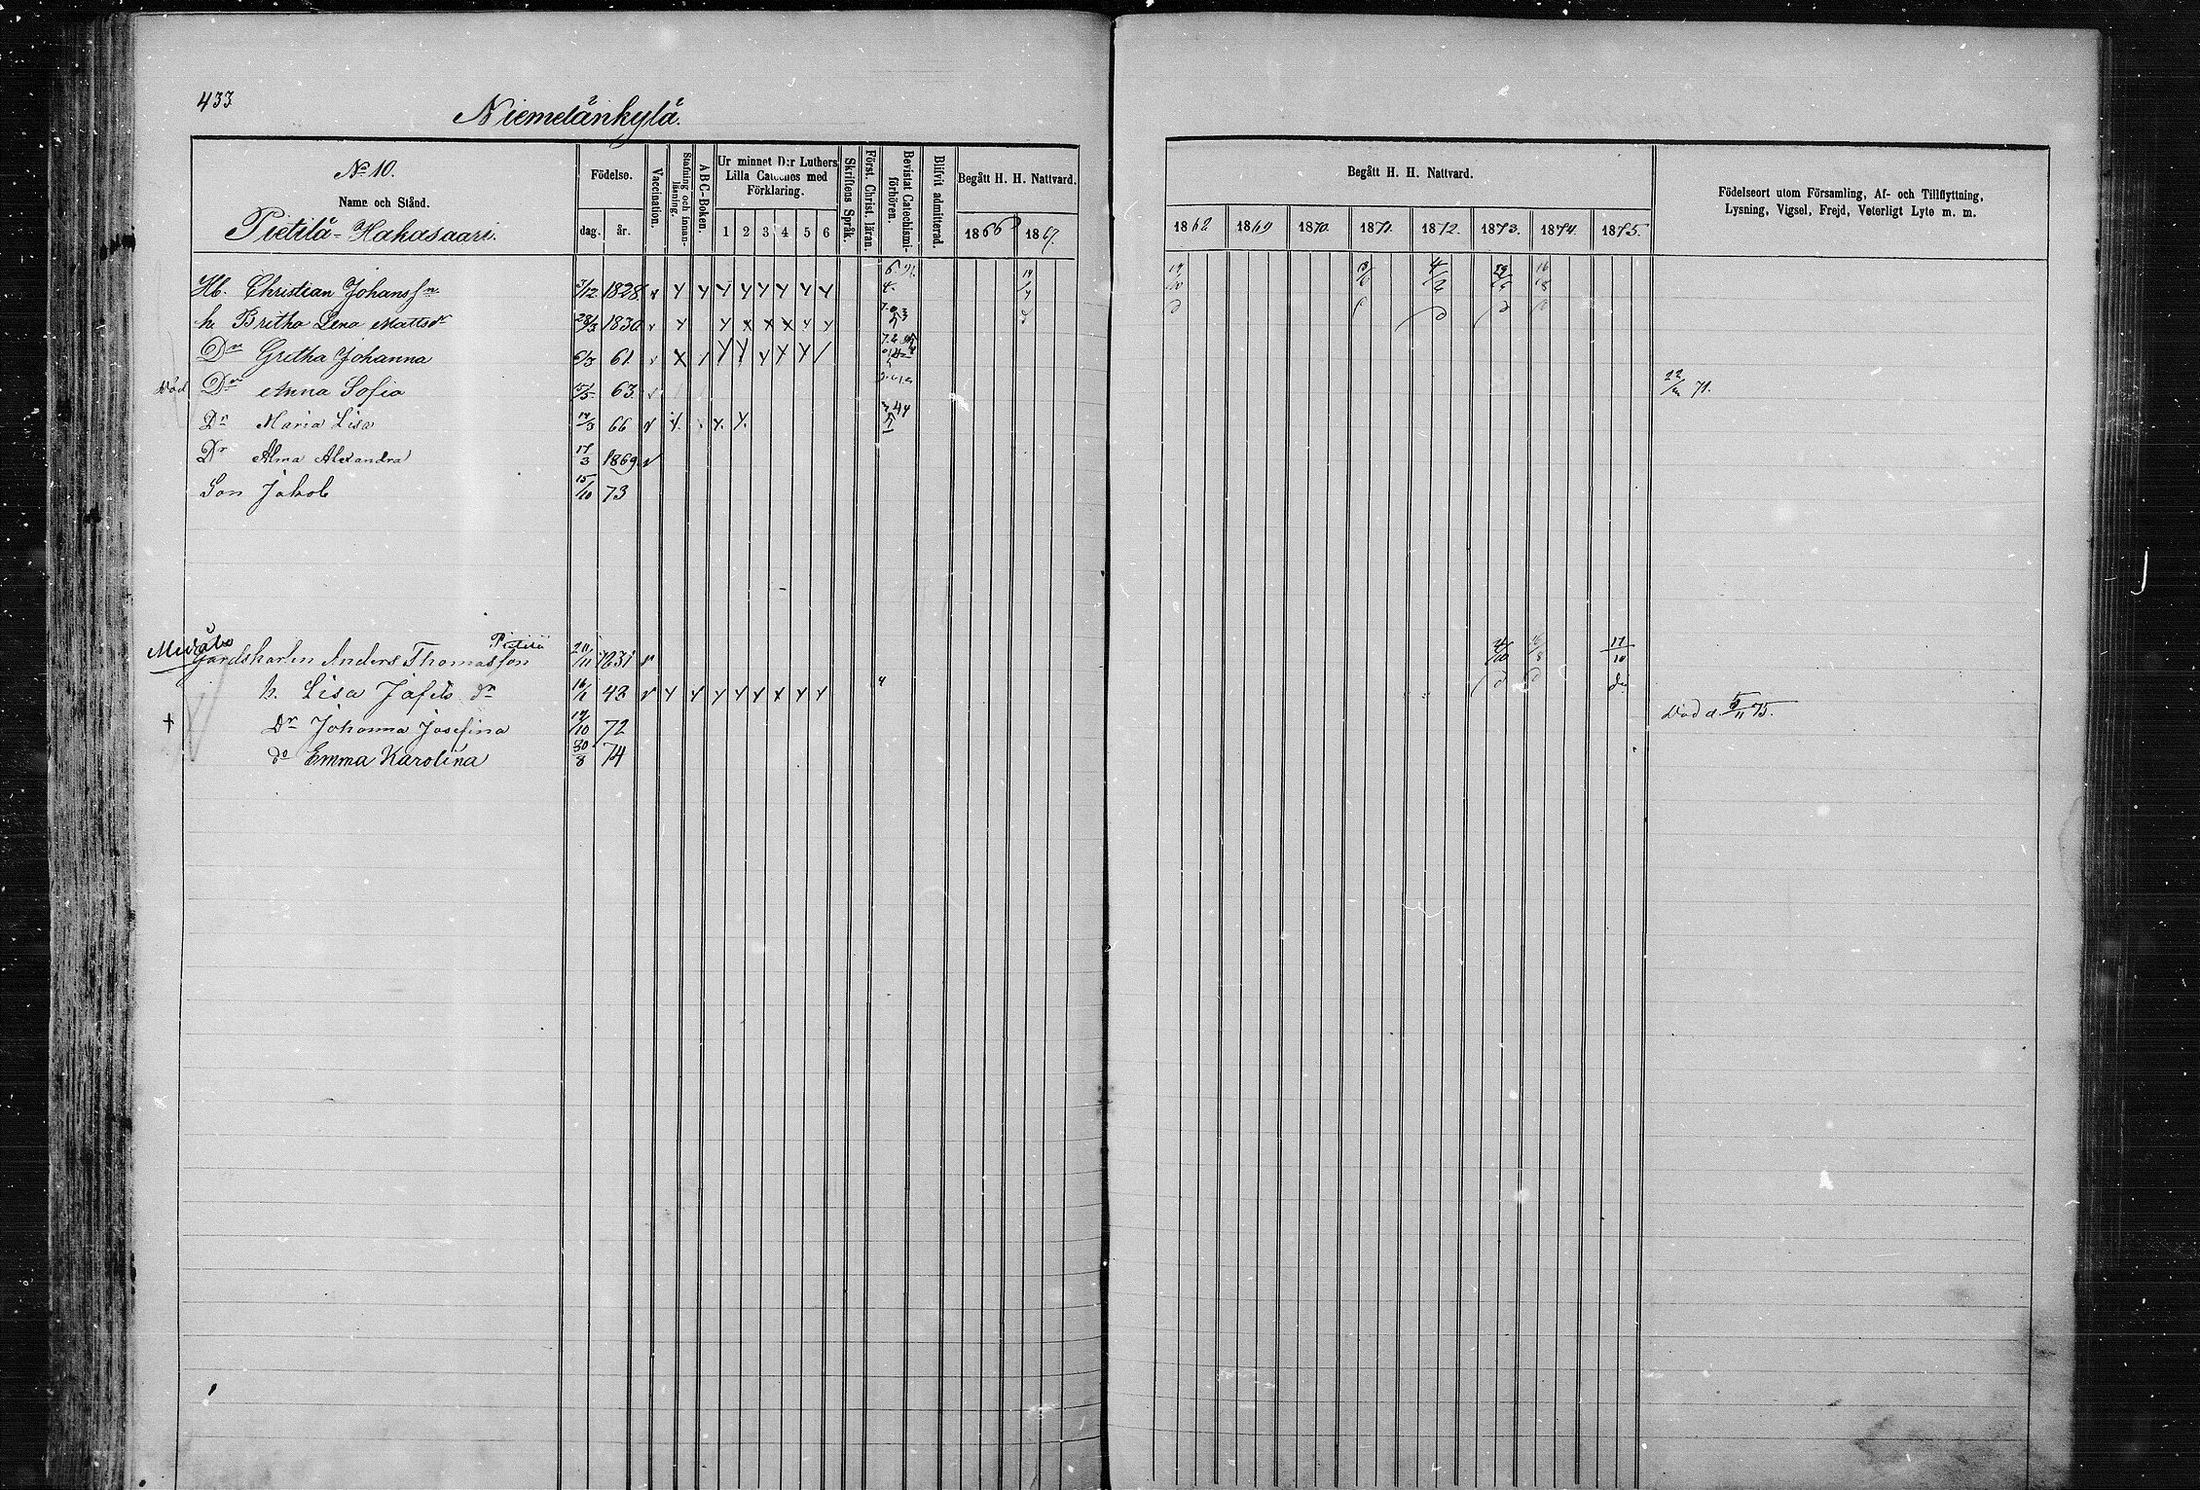 433
Niemelänkylä.
No 10.
Namn och Stånd.
Pietilä-Hakasaari.
Födelse.
dag. år.
Vaccination.
Stafning och innanläsning.
ABC-Boken.
Ur minnet D:r Luthers Lilla Cateches med Förklaring.
1 2 3 4 5 6
Skriftens Språk.
Först. Christ. läran.
Bevistat Catechismiförhören.
Blifvit admitterad.
Begått H. H. Nattvard.
1866 1867.
Begått H. H. Nattvard.
1868 1869 1870. 1871. 1872. 1873. 1874. 1875.
Födelseort utom Församling, Af- och Tillflyttning,
Lysning, Vigsel, Frejd, Veterligt Lyte m. m.
Hb. Christian Johanssn 1828
h. Britha Lena Mattsdr 28/3 1830
Dr Gretha Johanna 61
Död Dr Anna Sofia 63 71.
Dr Maria Lisa 66
Dr Alma Alexandra 17/3 1869
Son Jakob 15/10 73
Pietilä
Gårdskarlen Anders Thomasson 1831
h. Lisa Jafets dr 42
† Dr Johanna Josefina 72 Död d. 75.
do Emma Karolina 30/8 74